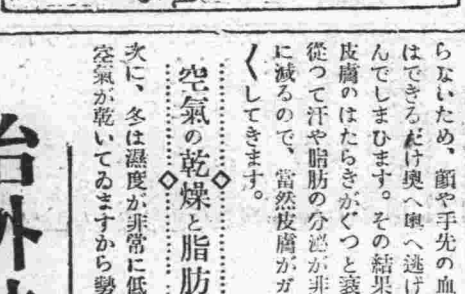 らないため、顔や手先の血
はできるだけ奥へ奥へ逃げ
んでしまひます。その結果
皮膚のはたらきがぐつと衰
從つて汗や脂肪の分泌が非
に減るので、當然皮膚がガ
くしてきます。
空氣の乾燥と脂肪
次に、冬は濕度が非常に低
空氣が乾いてゐますから勢
治外